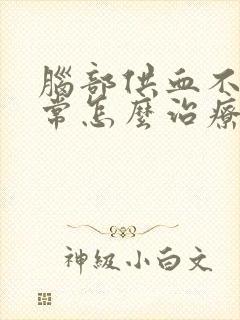 腦部供血不
常怎麼治療
神級小白文